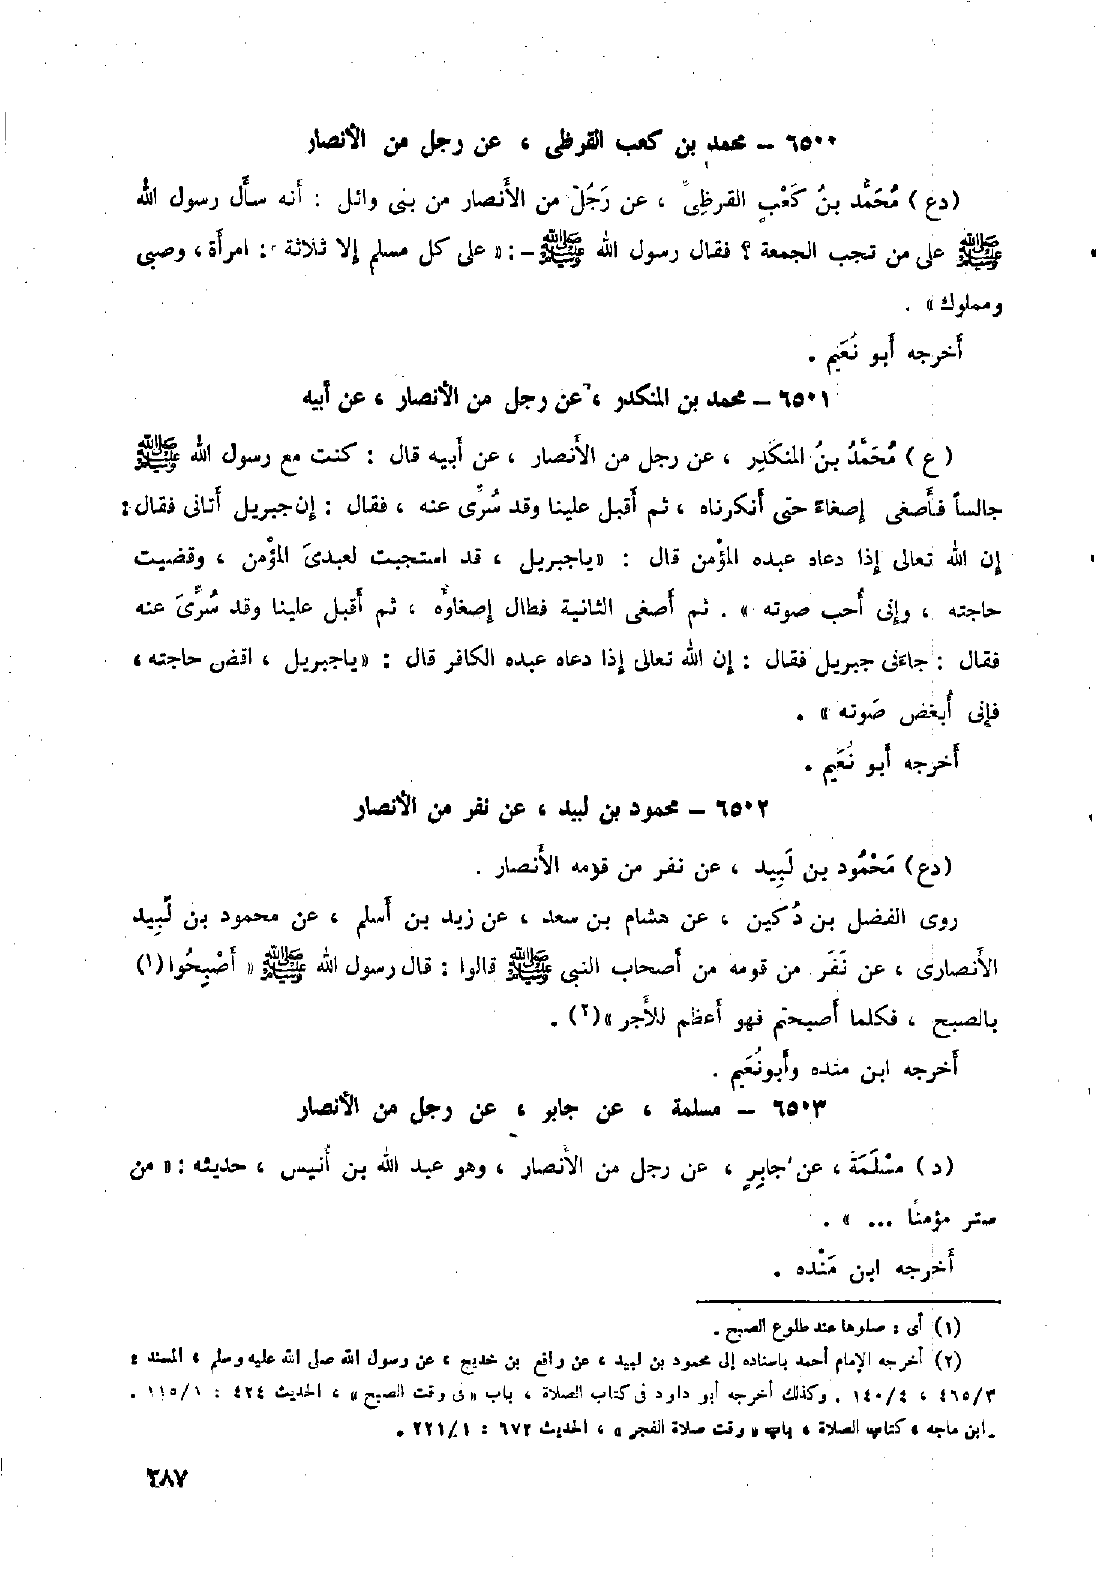 ٦٥٠٠ – محمد بن كعب القرظى ، عن رجل من الأنصار
(دع) مُحَمَّد بنُ كَعْبٍ القرظِىّ ، عن رَجُل من الأنصار من بنى وائل : أنه سأل رسول الله
ﷺ على من تجب الجمعة ؟ فقال رسول الله ﷺ – : « على كل مسلم إلا ثلاثة : امرأة ، وصبى
ومملوك » .
أخرجه أبو نُعَيم .
٦٥٠١ – محمد بن المنكدر ، عن رجل من الأنصار ، عن أبيه
(ع) مُحَمَّدُ بنُ المنكَدِر ، عن رجل من الأنصار ، عن أبيه قال : كنت مع رسول الله ﷺ
جالساً فأصغى إصغاءً حتى أنكرناه ، ثم أقبل علينا وقد سُرِّى عنه ، فقال : إن جبريل أتانى فقال :
إن الله تعالى إذا دعاه عبده المؤمن قال : «ياجبريل ، قد استجبت لعبدىَ المؤمن ، وقضيت
حاجته ، وإنى أُحب صوته » . ثم أصغى الثانية فطال إصغاؤه ، ثم أقبل علينا وقد سُرِّىَ عنه
فقال : جاءنى جبريل فقال : إن الله تعالى إذا دعاه عبده الكافر قال : «ياجبريل ، اقض حاجته ،
فإنى أُبغض صَوته » .
أخرجه أبو نُعَيم .
٦٥٠٢ – محمود بن لبيد ، عن نفر من الأنصار
(دع) مَحْمُود بن لَبِيد ، عن نفر من قومه الأنصار .
روى الفضل بن دُكين ، عن هشام بن سعد ، عن زيد بن أسلم ، عن محمود بن لَبِيد
الأنصارى ، عن نَفَر من قومه من أصحاب النبى ﷺ قالوا : قال رسول الله ﷺ « أصْبِحُوا (١)
بالصبح ، فكلما أصبحتم فهو أعظم للأجر »(٢) .
أخرجه ابن منده وأبونُعَيم .
٦٥٠٣ – مسلمة ، عن جابر ، عن رجل من الأنصار
(د) مَسْلَمَة ، عن جابِرٍ ، عن رجل من الأنصار ، وهو عبد الله بن أُنيس ، حديثه : « من
ستر مؤمنًا ... » .
أخرجه ابن مَنْده .
(١) أى : صلوها عند طلوع الصبح .
(٢) أخرجه الإمام أحمد باسناده إلى محمود بن لبيد ، عن رافع بن خديج ، عن رسول الله صلى الله عليه وسلم ، المسند :
٤٦٥/٣ ، ١٤٠/٤ . وكذلك أخرجه أبو داود فى كتاب الصلاة ، باب «فى وقت الصبح» ، الحديث ٤٢٤ : ١١٥/١ .
ابن ماجه ، كتاب الصلاة ، باب « وقت صلاة الفجر » ، الحديث ٦٧٢ : ٢٢١/١ .
٣٨٧